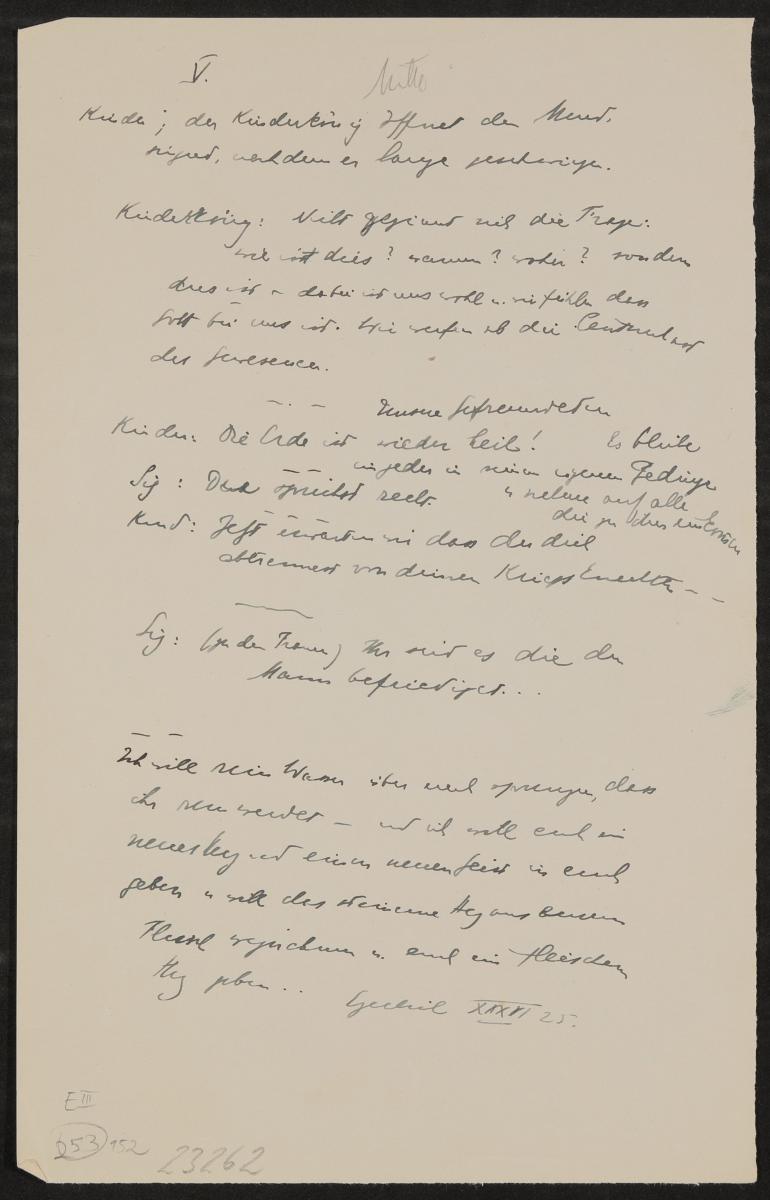 V.
Mitte
Kinder; der Kinderkönig öffnet den Mund,
singend, nachdem er lange geschwiegen.
Kinderkönig: Nicht geziemt sich die Frage:
wie ist dies? warum? woher? sondern
dies ist - dabei ist uns wohl u. wir fühlen dass
Gott bei uns ist. Wir werfen ab die
des Gewesenen.
Unsere
Kinder: Die Erde ist wieder heil! Es bleibe
ein jeder in seinem eigenen
Sig: Du sprichst recht. u nehme auf alle
die zu ihm
Kind: Jetzt erwarten wir dass du dich
abtrennest von deinen Kriegsknechten - -
Sig: (zu den Frauen) Ihr seid es die den
Mann befriediget...
Ich will rein Wasser über euch sprengen, dass
ihr rein werdet - und ich will euch ein
neues Herz und einen neuen Geist in euch
geben u will das steinerne Herz aus eurem
Fleisch wegnehmen u. euch ein fleischern
Herz geben..
Ezechiel XXXVI 25.
E III
253 152
23262